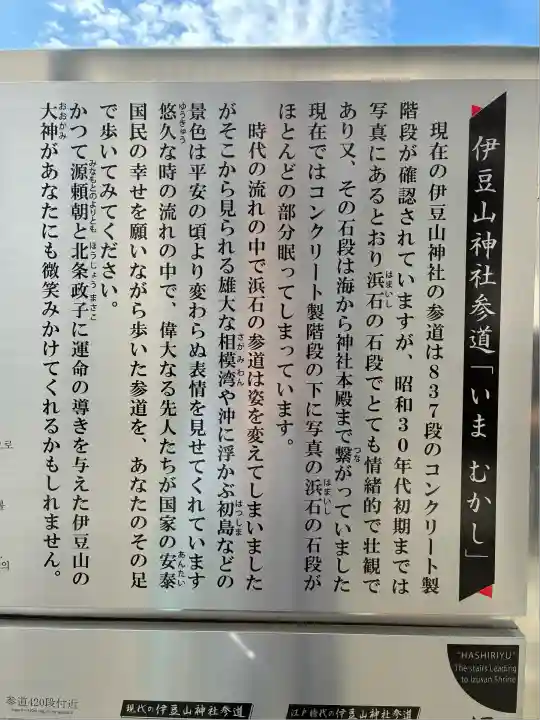 伊豆山神社参道「いま むかし」
現在の伊豆山神社の参道は837段のコンクリート製
階段が確認されていますが、昭和30年代初期までは
写真にあるとおり浜石の石段でとても情緒的で壮観で
はまいし
あり又、その石段は海から神社本殿まで繋がっていました
つな
現在ではコンクリート製階段の下に写真の浜石の石段が
はまいし
ほとんどの部分眠ってしまっています。
時代の流れの中で浜石の参道は姿を変えてしまいました
がそこから見られる雄大な相模湾や沖に浮かぶ初島などの
さがみわん
はつしま
景色は平安の頃より変わらぬ表情を見せてくれています
悠久な時の流れの中で、偉大なる先人たちが国家の安泰
ゆうきゅう
あんたい
国民の幸せを願いながら歩いた参道を、あなたのその足
で歩いてみてください。
かつて源頼朝と北条政子に運命の導きを与えた伊豆山の
みなもとのよりとも
ほうじょうまさこ
大神があなたにも微笑みかけてくれるかもしれません。
おおがみ
"HASHIRIYU"
The stairs Leading
to Izusan Shrine
参道420段付近
現代の伊豆山神社参道
江戸時代の伊豆山神社参道